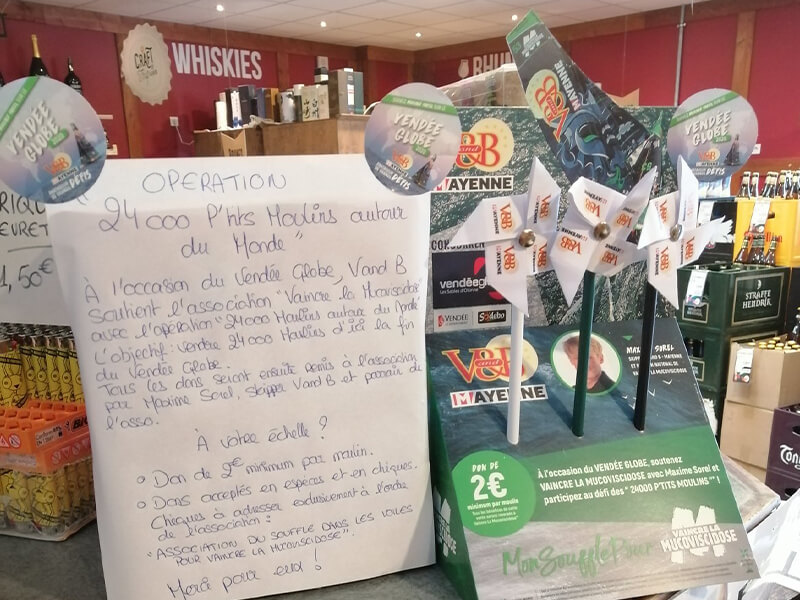 CRAFT
WHISKIES
RHU
VENDÉE
GLOBE
V and B
DÉFIS
VENDÉE
GLOBE
DÉFIS
VENDÉE
GLOBE
1,50€
OPERATION
"24000 P'tits Moulins autour
du Monde"
À l'occasion du Vendée Globe, V and B
soutient l'association "Vaincre la Mucoviscidose"
avec l'opération "24000 Moulins autour du Monde"
L'objectif : vendre 24000 Moulins d'ici la fin
du Vendée Globe
Tous les dons seront ensuite remis à l'association
par Maxime Sorel, skipper V and B et parrain de
l'asso.
À votre échelle ?
Don de 2€ minimum par moulin.
Dons acceptés en espèces et en chèques.
Chèques à adresser exclusivement à l'ordre
de l'association :
"ASSOCIATION DU SOUFFLE DANS LES VOILES
POUR VAINCRE LA MUCOVISCIDOSE".
Merci pour eux !
V and B
MAYENNE
V and B
MAYENNE
vendéeglobe
Les Sables d'Olonne
VENDÉE
Sodebo
V and B
MAYENNE
MAXIME SOREL
SKIPPER V AND B - MAYENNE
VAINCRE LA
MUCOVISCIDOSE
DON DE
2€
minimum par moulin
À l'occasion du VENDÉE GLOBE, soutenez
VAINCRE LA MUCOVISCIDOSE avec Maxime Sorel et
participez au défi des "24000 P'TITS MOULINS" !
Mon Souffle Pour
VAINCRE LA
MUCOVISCIDOSE
STRAFFE
HENDRIK